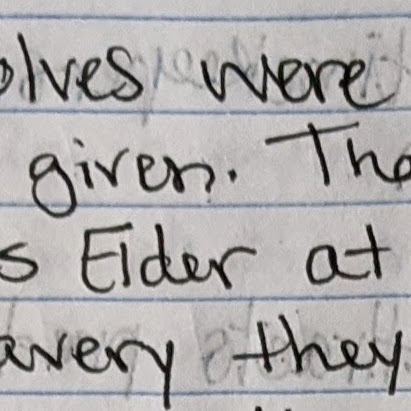 olves were
given. The
s Elder at
avery they